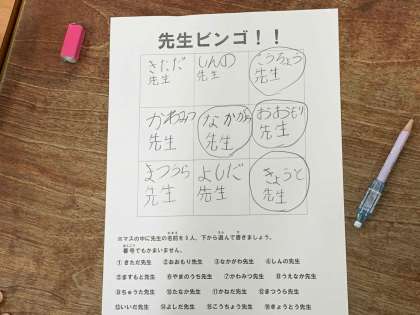 先生ビンゴ！！
きただ先生 しんの先生 こうちょう先生
かわみつ先生 なかがわ先生 おおもり先生
まつうら先生 よしだ先生 きょうとう先生
※マスの中に先生の名前を9人、下から選んで書きましょう。
番号でもかまいません。
①きただ先生 ②おおもり先生 ③なかがわ先生 ④しんの先生
⑤ますもと先生 ⑥やまのうち先生 ⑦かわみつ先生 ⑧うえなか先生
⑨ちゅうた先生 ⑩たなか先生 ⑪かねだ先生 ⑫まつうら先生
⑬いいだ先生 ⑭よしだ先生 ⑮こうちょう先生 ⑯きょうとう先生